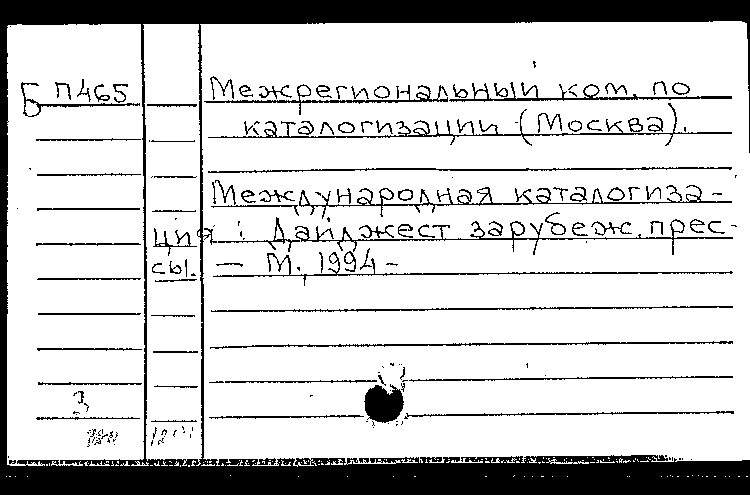 Б П465
Межрегиональный ком. по
каталогизации (Москва).
Международная каталогиза-
ция : Дайджест зарубеж. прес-
сы. — М., 1994 -
З